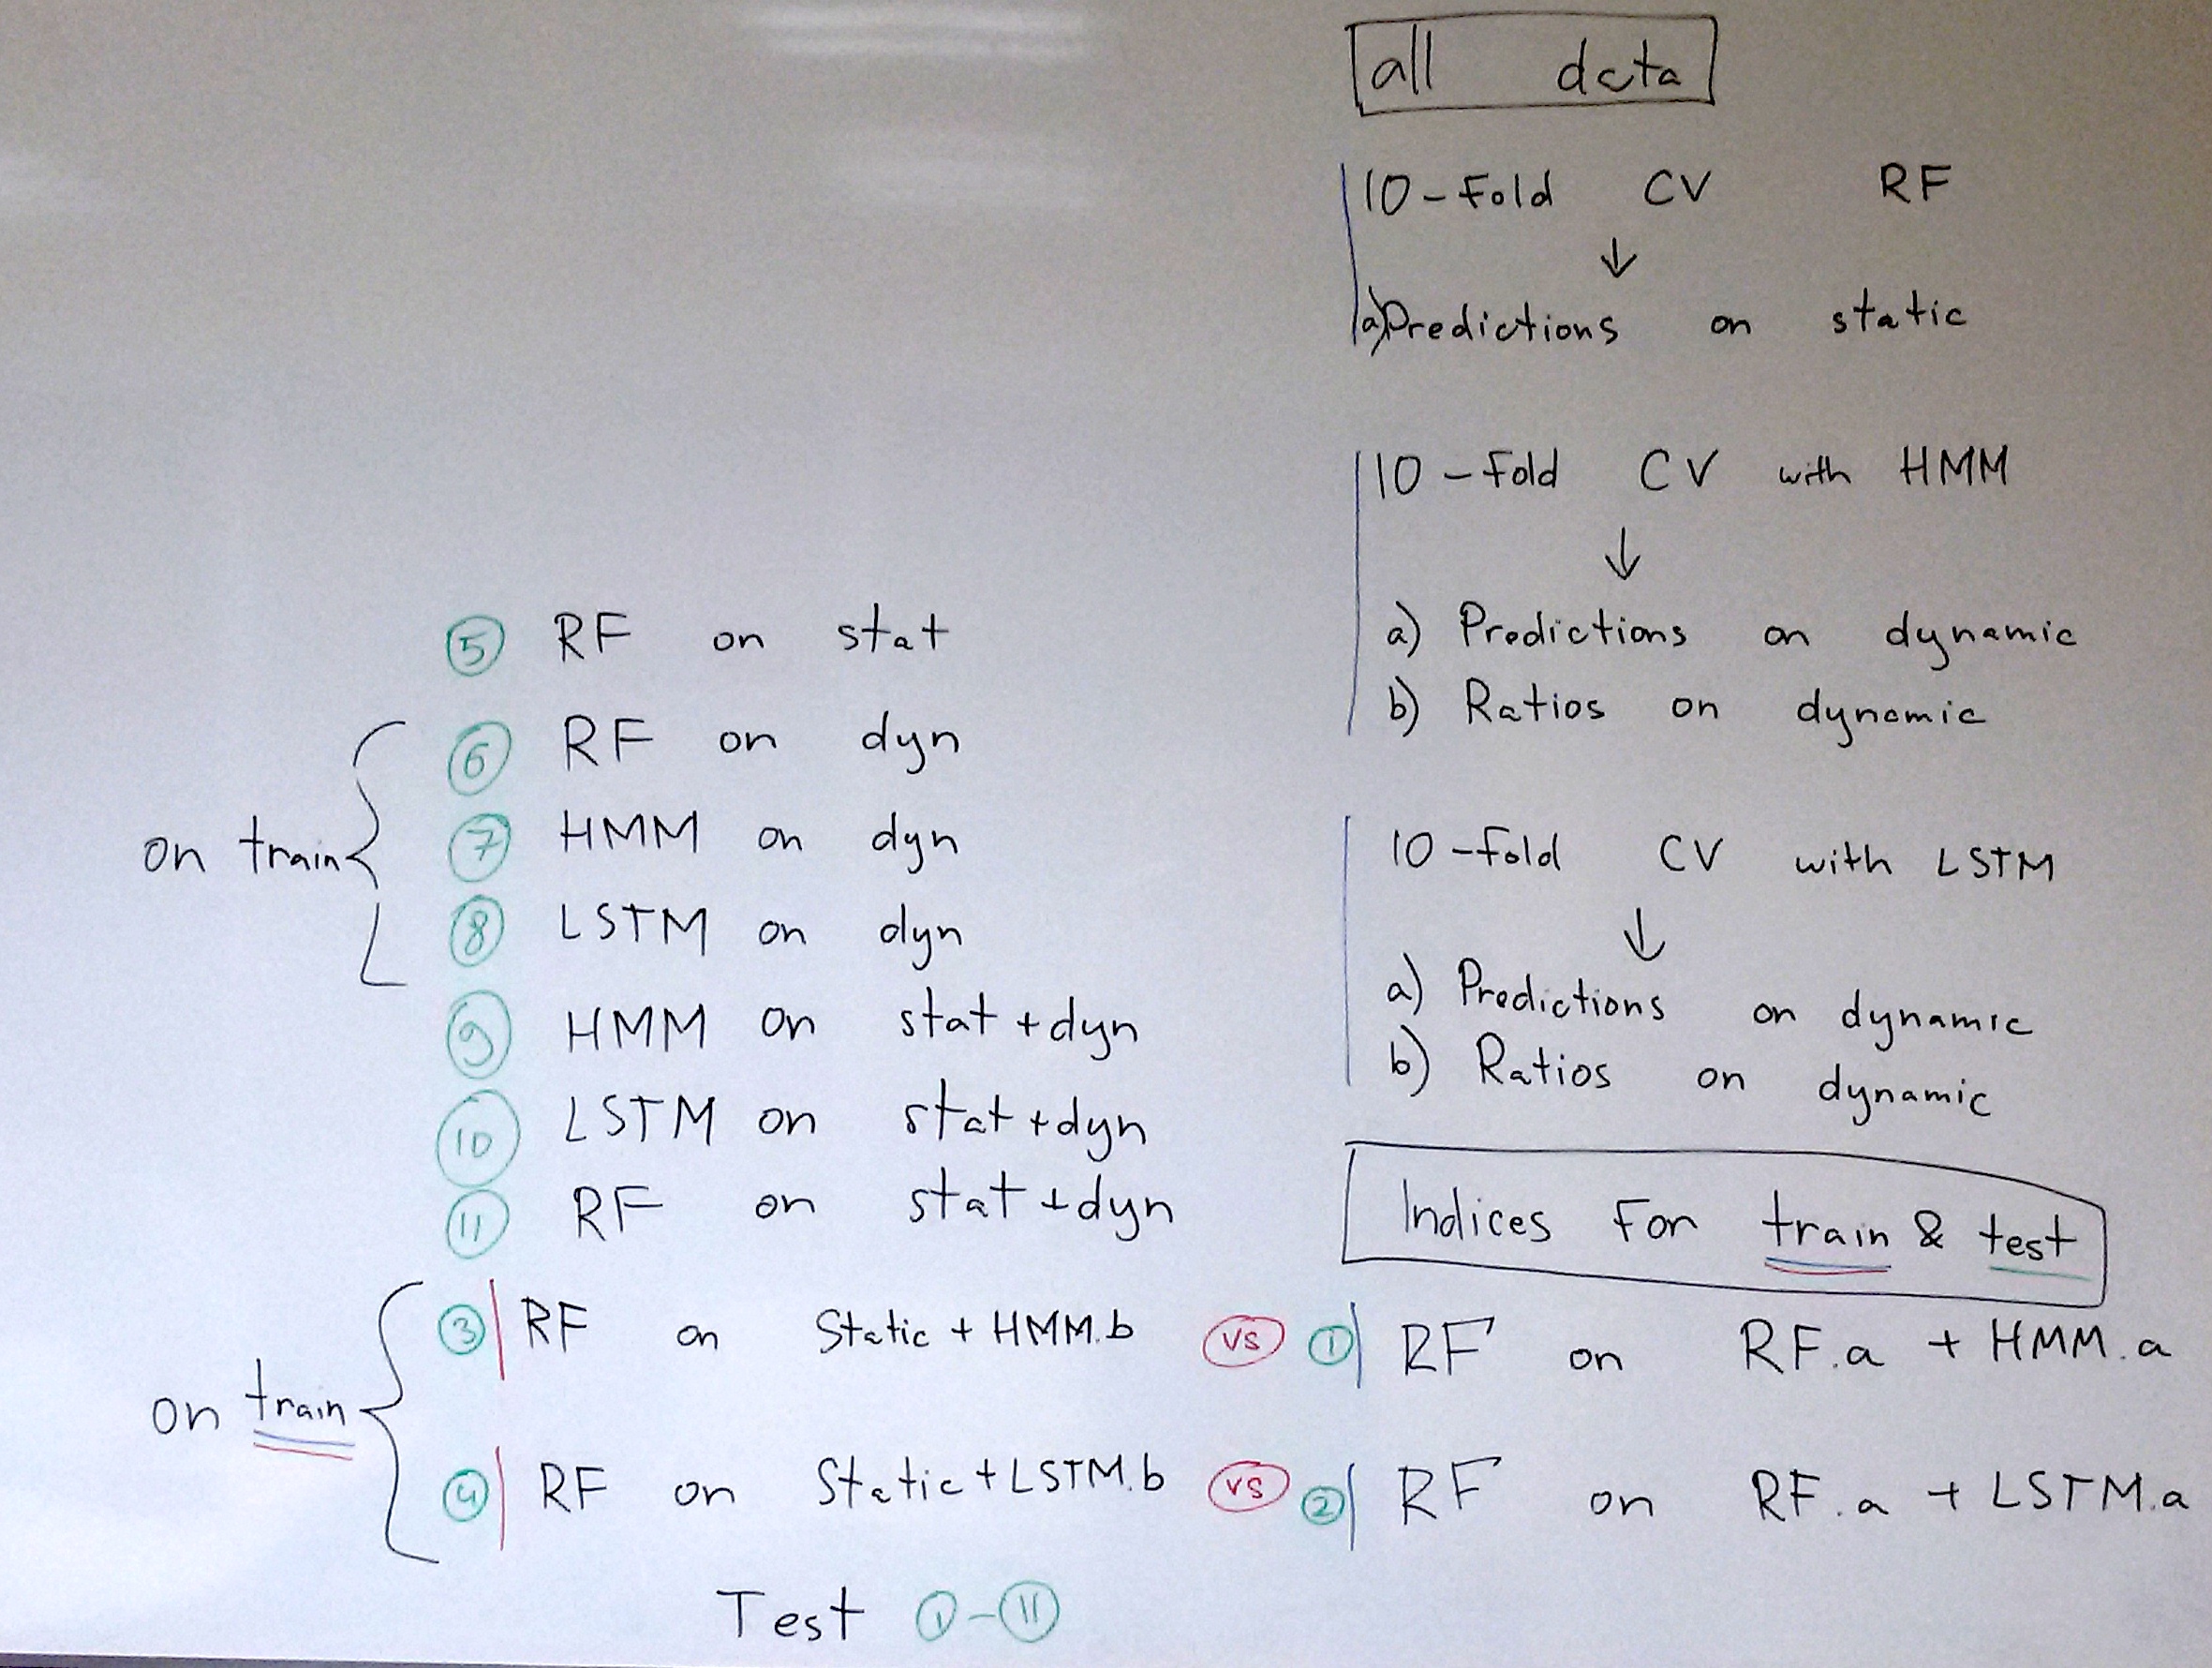 all data
10-Fold CV RF
↓
a) Predictions on static
10-Fold CV with HMM
↓
a) Predictions on dynamic
b) Ratios on dynamic
10-fold CV with LSTM
↓
a) Predictions on dynamic
b) Ratios on dynamic
Indices For train & test
on train
5 RF on stat
6 RF on dyn
7 HMM on dyn
8 LSTM on dyn
9 HMM on stat + dyn
10 LSTM on stat + dyn
11 RF on stat + dyn
on train
3 RF on Static + HMM.b vs 1 RF on RF.a + HMM.a
4 RF on Static + LSTM.b vs 2 RF on RF.a + LSTM.a
Test 1 - 11